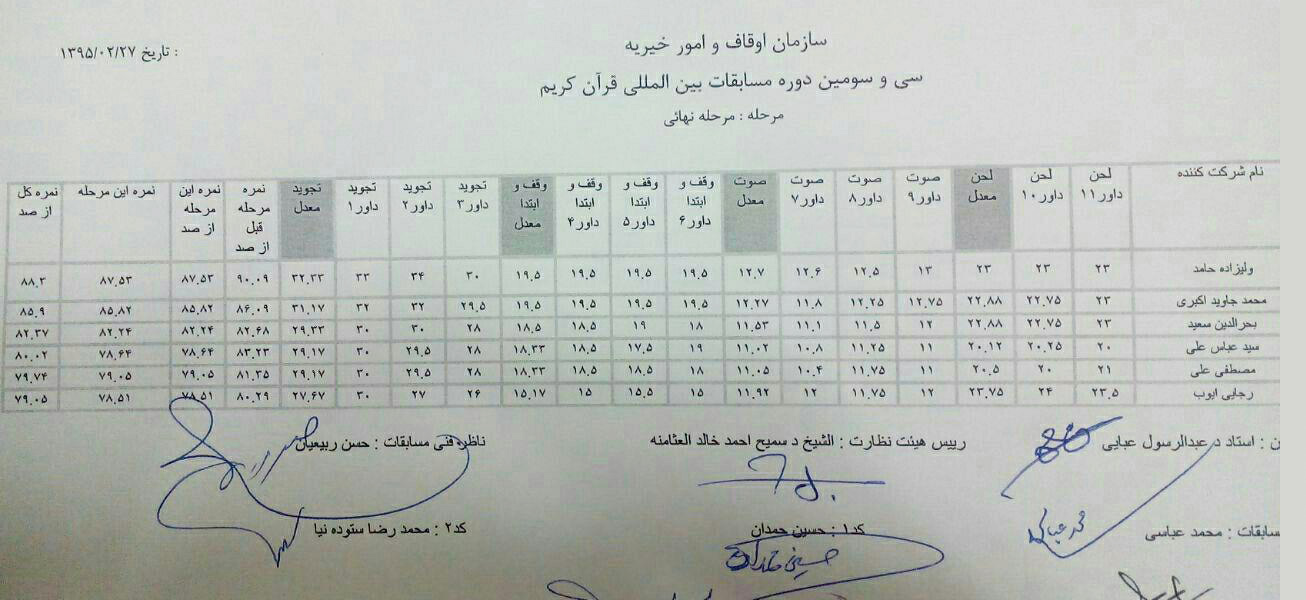 سازمان اوقاف و امور خیریه
تاریخ ۱۳۹۵/۰۲/۲۷ :
سی و سومین دوره مسابقات بین المللی قرآن کریم
مرحله : مرحله نهائی
نام شرکت کننده لحن داور۱۱ لحن داور۱۰ لحن معدل صوت داور۹ صوت داور۸ صوت داور۷ صوت معدل وقف و ابتدا داور۶ وقف و ابتدا داور۵ وقف و ابتدا داور۴ وقف و ابتدا معدل تجوید داور۳ تجوید داور۲ تجوید داور۱ تجوید معدل نمره مرحله قبل از صد نمره این مرحله از صد نمره این مرحله نمره کل از صد
ولیزاده حامد ۲۳ ۲۳ ۲۳ ۱۳ ۱۲.۵ ۱۲.۶ ۱۲.۷ ۱۹.۵ ۱۹.۵ ۱۹.۵ ۱۹.۵ ۳۰ ۳۴ ۳۳ ۳۲.۳۳ ۹۰.۰۹ ۸۷.۵۳ ۸۷.۵۳ ۸۸.۳
محمد جاوید اکبری ۲۳ ۲۲.۷۵ ۲۲.۸۸ ۱۲.۷۵ ۱۲.۲۵ ۱۱.۸ ۱۲.۲۷ ۱۹.۵ ۱۹.۵ ۱۹.۵ ۱۹.۵ ۲۹.۵ ۳۲ ۳۲ ۳۱.۱۷ ۸۶.۰۹ ۸۵.۸۲ ۸۵.۸۲ ۸۵.۹
بحرالدین سعید ۲۳ ۲۲.۷۵ ۲۲.۸۸ ۱۲ ۱۱.۵ ۱۱.۱ ۱۱.۵۳ ۱۸ ۱۹ ۱۸.۵ ۱۸.۵ ۲۸ ۳۰ ۳۰ ۲۹.۳۳ ۸۲.۶۸ ۸۲.۲۴ ۸۲.۲۴ ۸۲.۳۷
سید عباس علی ۲۰ ۲۰.۲۵ ۲۰.۱۲ ۱۱ ۱۱.۲۵ ۱۰.۸ ۱۱.۰۲ ۱۹ ۱۷.۵ ۱۸.۵ ۱۸.۳۳ ۲۸ ۲۹.۵ ۳۰ ۲۹.۱۷ ۸۳.۲۳ ۷۸.۶۴ ۷۸.۶۴ ۸۰.۰۲
مصطفی علی ۲۱ ۲۰ ۲۰.۵ ۱۱ ۱۱.۷۵ ۱۰.۴ ۱۱.۰۵ ۱۸ ۱۸.۵ ۱۸.۵ ۱۸.۳۳ ۲۸ ۲۹.۵ ۳۰ ۲۹.۱۷ ۸۱.۳۵ ۷۹.۰۵ ۷۹.۰۵ ۷۹.۷۴
رجایی ایوب ۲۳.۵ ۲۴ ۲۳.۷۵ ۱۲ ۱۱.۷۵ ۱۲ ۱۱.۹۲ ۱۵ ۱۵.۵ ۱۵ ۱۵.۱۷ ۲۶ ۲۷ ۳۰ ۲۷.۶۷ ۸۰.۲۹ ۷۸.۵۱ ۷۸.۵۱ ۷۹.۰۵
ن : استاد د عبدالرسول عبایی رییس هیئت نظارت : الشیخ د سمیح احمد خالد العثامنه ناظر فنی مسابقات : حسن ربیعیان
سابقات : محمد عباسی کد۱ : حسین حمدان کد۲ : محمد رضا ستوده نیا